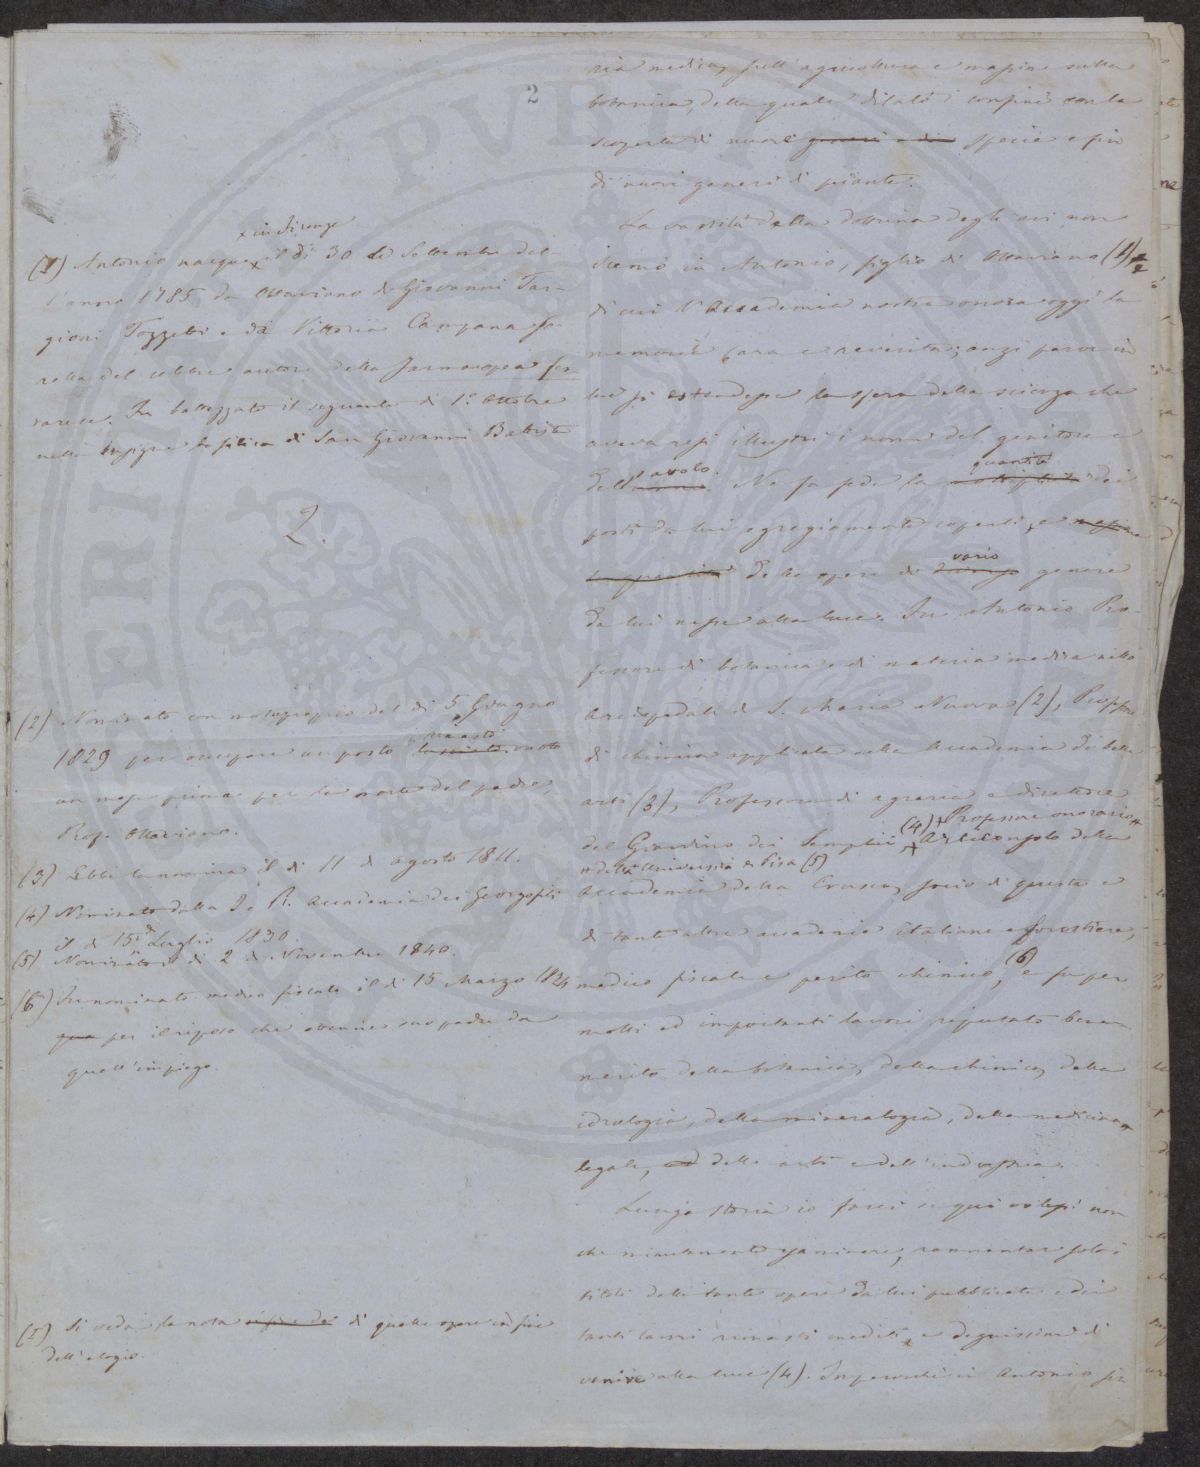 2
ria medica, sull'agricoltura e massime sulla
botanica, della quale dilatò i confini con la
scoperta di nuove generi e di specie e fin
di nuovi generi di piante.
La vastità della dottrina degli avi non
scemò in Antonio, figlio di Ottaviano (1)
di cui l'Accademia nostra onora oggi la
memoria cara e reverita; anzi parve in
lui si estendesse la sfera della scienza che
aveva resi illustri i nomi del genitore e
dell'avolo. Ne fa fede la quantità dei
posti da lui egregiamente coperti, e
delle opere di vario genere
da lui messe alla luce. Fu Antonio Pro-
fessore di botanica e di materia medica nello
Arcispedale di S. Maria Nuova (2), Professore
di chimica applicata nella Accademia di belle
arti (3), Professore di agraria e direttore
del Giardino dei Semplici (4), + Professore onorario
della Università di Pisa (5)
+ Arciconsolo della
Accademia della Crusca, socio di questa e
di tante altre accademie italiane e forestiere,
medico fiscale e perito chimico, (6) e fu per
molti ed importanti lavori reputato bene-
merito della botanica, della chimica, della
idrologia, della mineralogia, della medicina
legale, ed delle arti e dell'industria.
Lunga storia io farei se qui volessi non
che minutamente esaminare, rammentare solo i
titoli delle tante opere da lui pubblicate e dei
tanti lavori rimasti inediti e degnissimi di
venire alla luce (4). Imperocchè in Antonio fin
x in Firenze
(1) Antonio nacque x il dì 30 di Settembre del-
l'anno 1785 da Ottaviano di Giovanni Tar-
gioni Tozzetti e da Vittoria Campana so-
rella del celebre autore della Farmacopea fer-
rarese. Fu battezzato il seguente dì 1º Ottobre
nella insigne basilica di San Giovanni Battista
2.
(2) Nominato con motuproprio del dì 5 Giugno
1829 per occupare un posto rimasto vuoto
un mese prima per la morte del padre,
Prof. Ottaviano.
(3) Ebbe la nomina il dì 11 d'agosto 1811.
(4) Nominato dalla I. e R. Accademia dei Georgofili
il dì 15 di Luglio 1830.
(5) Nominato il dì 2 di Novembre 1840.
(6) Fu nominato medico fiscale il dì 15 Marzo 1824
per il riposo che ottenne suo padre da
quell'impiego.
(I) Si veda la nota in fine dei di quelle opere in fine
dell'elogio.